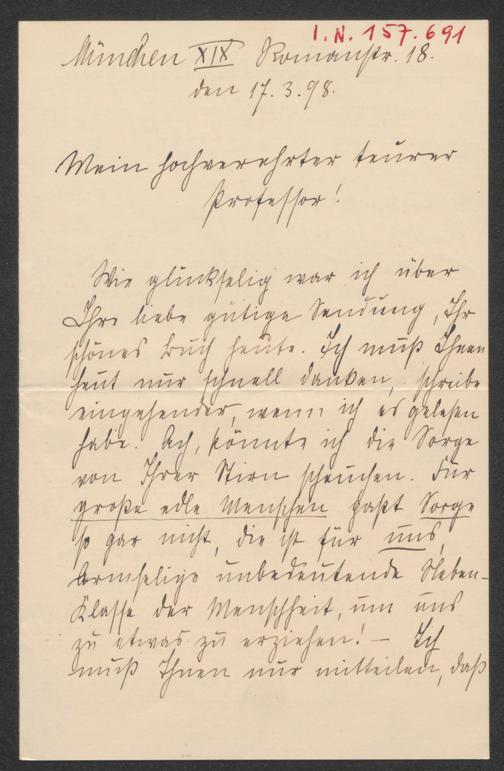 I.N. 157.691
München XIX Romanstr. 18.
den 17.3.98.
Mein hochverehrter teurer
Professor!
Wie glückselig war ich über
Ihre liebe gütige Sendung, Ihr
schönes Buch heute. Ich muß Ihnen
heut nur schnell danken, schreibe
eingehender, wenn ich es gelesen
habe. Ach, könnte ich die Sorge
von Ihrer Stirn scheuchen. Für
große edle Menschen paßt Sorge
so gar nicht, die ist für uns,
armselige unbedeutende Neben-
klasse der Menschheit, um uns
zu etwas zu erziehen! – Ich
muß Ihnen nur mitteilen, daß